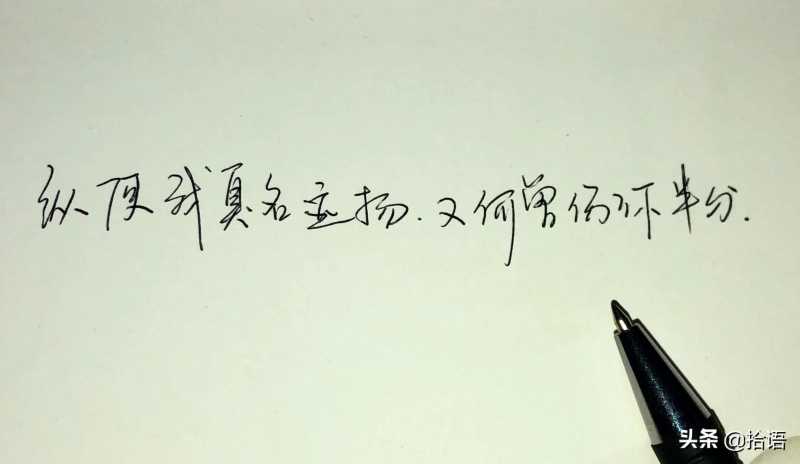 纵使我臭名远扬.又何曾伤你半分.
头条 @拾语